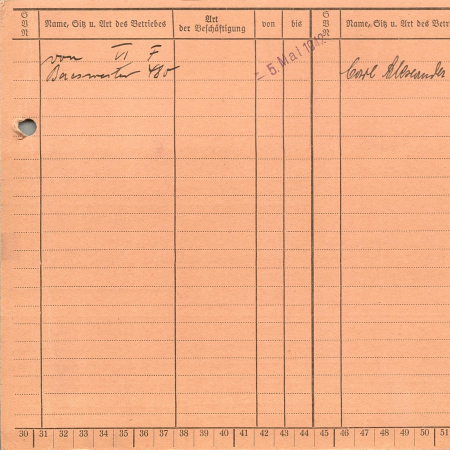 GBR
Name, Sitz u. Art des Betriebes
Art
der Beschäftigung
von
bis
GBR
Name, Sitz u. Art des Betri
von VI F
Baesweiler 480
- 5. Mai 1942
Carl Alexander
30 31 32 33 34 35 36 37 38 39 40 41 42 43 44 45 46 47 48 49 50 51